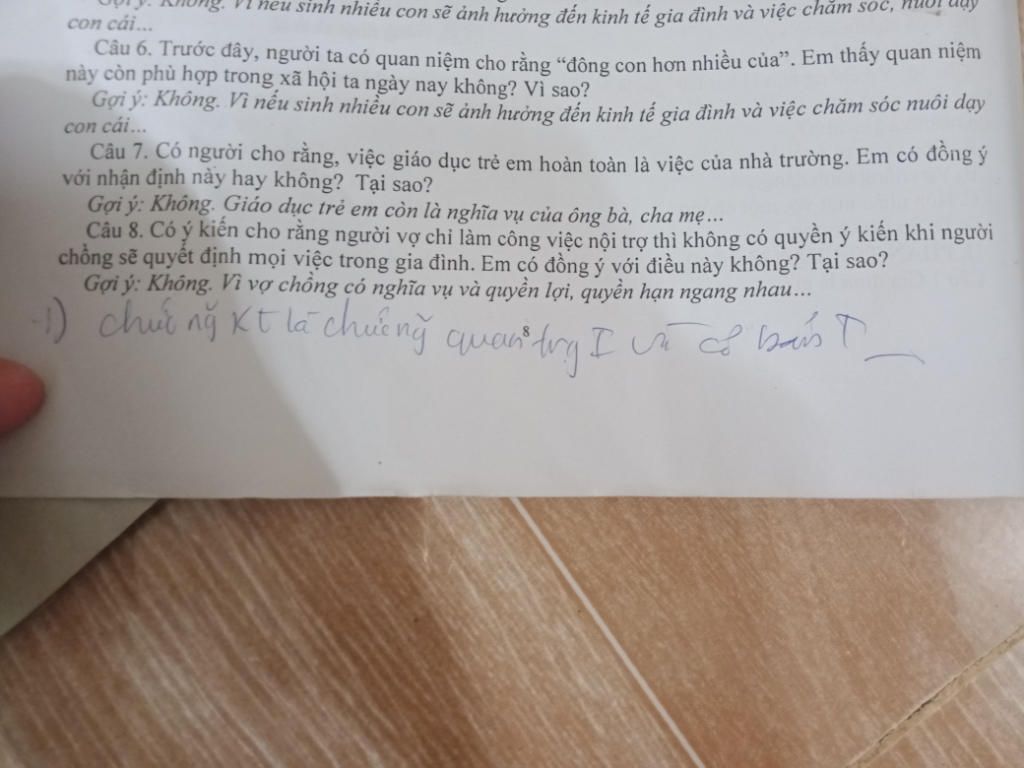 Gợi ý: Không. Vì nếu sinh nhiều con sẽ ảnh hưởng đến kinh tế gia đình và việc chăm sóc, nuôi dạy
con cái...
Câu 6. Trước đây, người ta có quan niệm cho rằng “đông con hơn nhiều của”. Em thấy quan niệm
này còn phù hợp trong xã hội ta ngày nay không? Vì sao?
Gợi ý: Không. Vì nếu sinh nhiều con sẽ ảnh hưởng đến kinh tế gia đình và việc chăm sóc nuôi dạy
con cái...
Câu 7. Có người cho rằng, việc giáo dục trẻ em hoàn toàn là việc của nhà trường. Em có đồng ý
với nhận định này hay không? Tại sao?
Gợi ý: Không. Giáo dục trẻ em còn là nghĩa vụ của ông bà, cha mẹ...
Câu 8. Có ý kiến cho rằng người vợ chỉ làm công việc nội trợ thì không có quyền ý kiến khi người
chồng sẽ quyết định mọi việc trong gia đình. Em có đồng ý với điều này không? Tại sao?
Gợi ý: Không. Vì vợ chồng có nghĩa vụ và quyền lợi, quyền hạn ngang nhau...
1) chức ng KT là chức ng quan trg I và cơ
8